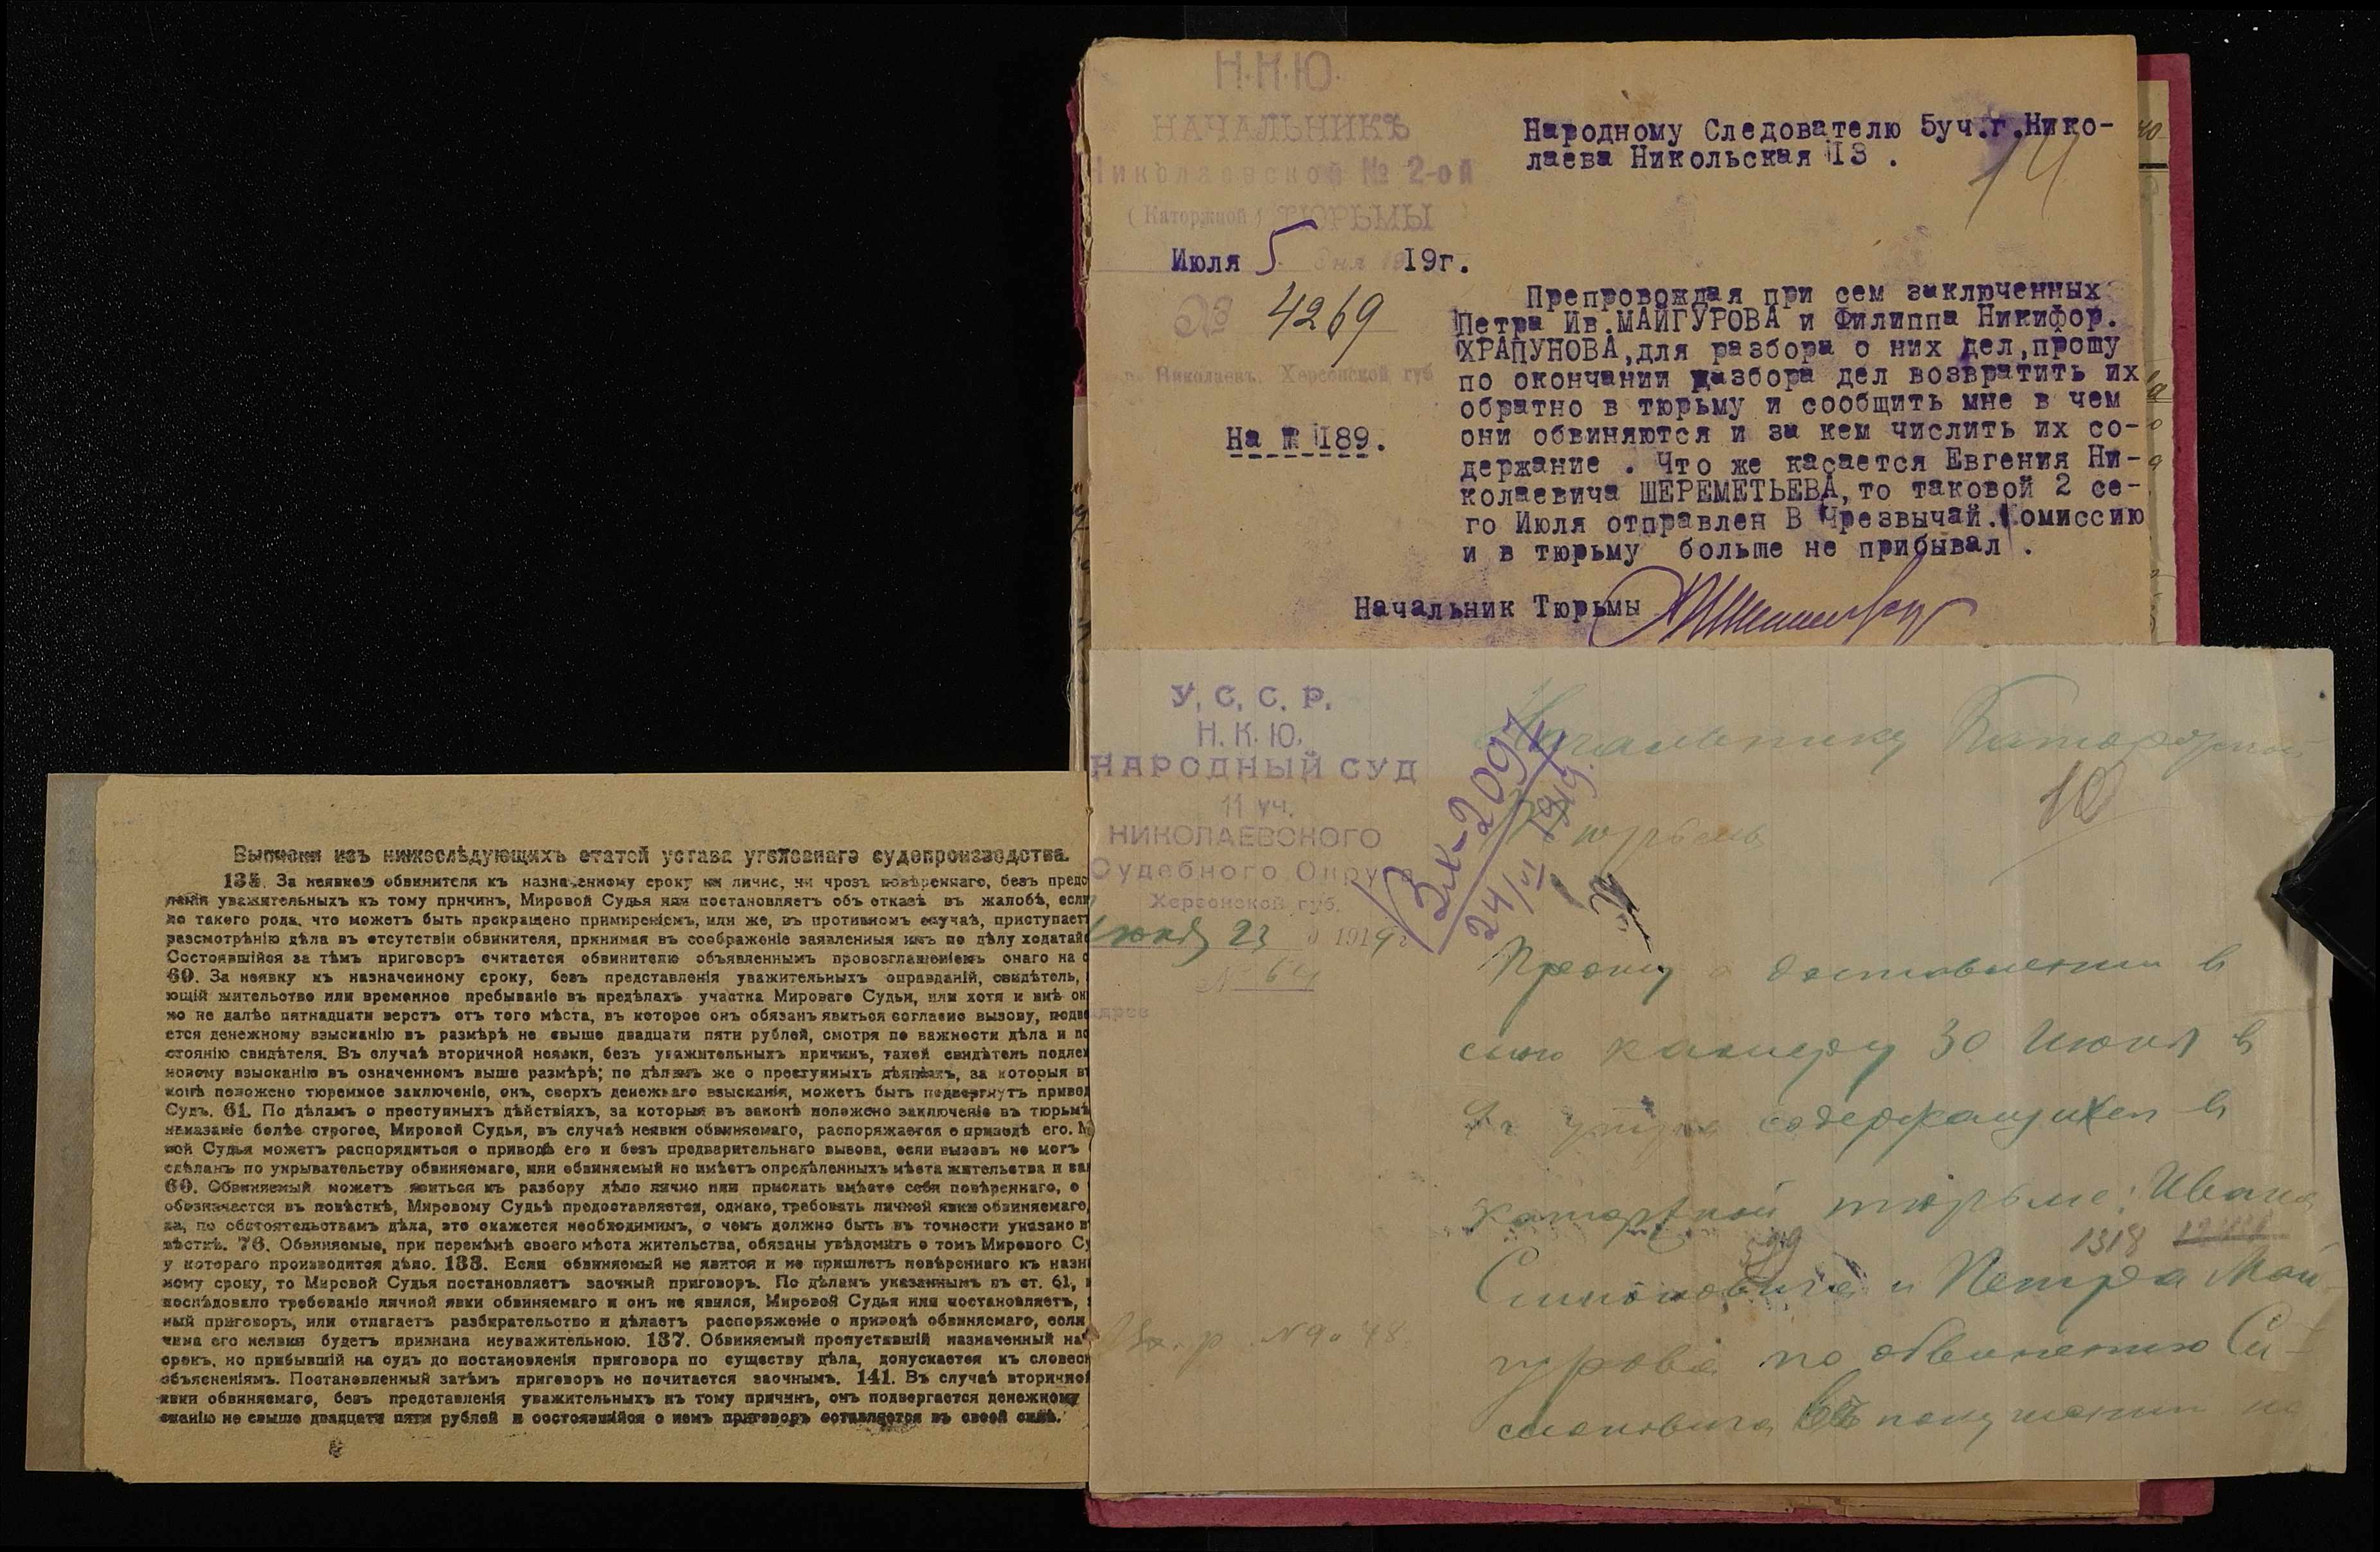 Н.К.Ю.
НАЧАЛЬНИКЪ
Николаевской № 2-ой
(Каторжной) ТЮРЬМЫ
Июля 5 дня 1919г.
№ 4269
г. Николаевъ, Херсонской губ
На № 1189.
Народному Следователю 5уч.г.Нико-
лаева Никольская 13 .
14
Препровождая при сем заключенных
Петра Ив.МАЙГУРОВА и Филиппа Никифор.
ХРАПУНОВА,для разбора о них дел,прошу
по окончании разбора дел возвратить их
обратно в тюрьму и сообщить мне в чем
они обвиняются и за кем числить их со-
держание . Что же касается Евгения Ни-
колаевича ШЕРЕМЕТЬЕВА,то таковой 2 се-
го Июля отправлен В Чрезвычай.Комиссию
и в тюрьму больше не прибывал .
Начальник Тюрьмы
У. С. С. Р.
Н. К. Ю.
НАРОДНЫЙ СУД
11 уч.
НИКОЛАЕВСКОГО
Судебного Округа
Херсонской губ.
Июня 23 1919 г
№ 64
Адрес
Начальнику Каторжной
Тюрьмы
10
Прошу о доставлении в
мою камеру 30 июня в
9 ч утра содержащихся в
каторжной тюрьме: Ивана
1318
Симоновича и Петра Май-
гурова по обвинению Си-
моновича в покушении на
Выписки изъ нижеслѣдующихъ статей устава уголовнаго судопроизводства.
135. За неявкою обвинителя къ назначенному сроку ни лично, ни чрезъ повѣреннаго, безъ предс
ленія уважительныхъ къ тому причинъ, Мировой Судья или постановляетъ объ отказѣ въ жалобѣ, если
но такого рода, что можетъ быть прекращено примиреніемъ, или же, въ противномъ случаѣ, приступает
разсмотрѣнію дѣла въ отсутствіи обвинителя, принимая въ соображеніе заявленныя имъ по дѣлу ходатай
Состоявшійся за тѣмъ приговоръ считается обвинителю объявленнымъ провозглашеніемъ онаго на с
60. За неявку къ назначенному сроку, безъ представленія уважительныхъ оправданій, свидѣтель,
ющій жительство или временное пребываніе въ предѣлахъ участка Мироваго Судьи, или хотя и внѣ он
но не далѣе пятнадцати верстъ отъ того мѣста, въ которое онъ обязанъ явиться согласно вызову, подве
ется денежному взысканію въ размѣрѣ не свыше двадцати пяти рублей, смотря по важности дѣла и по
стоянію свидѣтеля. Въ случаѣ вторичной неявки, безъ уважительныхъ причинъ, такой свидѣтель подле
новому взысканію въ означенномъ выше размѣрѣ; по дѣламъ же о преступныхъ дѣяніяхъ, за которыя въ
конѣ положено тюремное заключеніе, онъ, сверхъ денежнаго взысканія, можетъ быть подвергнутъ приво
Судъ. 61. По дѣламъ о преступныхъ дѣйствіяхъ, за которыя въ законѣ положено заключеніе въ тюрьмѣ
наказаніе болѣе строгое, Мировой Судья, въ случаѣ неявки обвиняемаго, распоряжается о приводѣ его. М
вой Судья можетъ распорядиться о приводѣ его и безъ предварительнаго вызова, если вызовъ не могъ
сдѣланъ по укрывательству обвиняемаго, или обвиняемый не имѣетъ опредѣленныхъ мѣста жительства и за
60. Обвиняемый можетъ явиться къ разбору дѣло лично или прислать вмѣсто себя повѣреннаго, о
обозначается въ повѣсткѣ, Мировому Судьѣ предоставляется, однако, требовать личной явки обвиняемаго,
да, по обстоятельствамъ дѣла, это окажется необходимымъ, о чемъ должно быть въ точности указано в
вѣсткѣ. 76. Обвиняемые, при перемѣнѣ своего мѣста жительства, обязаны увѣдомить о томъ Мирового Су
у котораго производится дѣло. 133. Если обвиняемый не явится и не пришлетъ повѣреннаго къ назн
ному сроку, то Мировой Судья постановляетъ заочный приговоръ. По дѣламъ указаннымъ въ ст. 61,
послѣдовало требованіе личной явки обвиняемаго и онъ не явился, Мировой Судья или постановляетъ,
ный приговоръ, или отлагаетъ разбирательство и дѣлаетъ распоряженіе о приводѣ обвиняемаго, если
чина его неявки будетъ признана неуважительною. 137. Обвиняемый пропустившій назначенный на
срокъ, но прибывшій на судъ до постановленія приговора по существу дѣла, допускается къ словес
объясненіямъ. Постановленный затѣмъ приговоръ не почитается заочнымъ. 141. Въ случаѣ вторичной
явки обвиняемаго, безъ представленія уважительныхъ къ тому причинъ, онъ подвергается денежному
сканію не свыше двадцати пяти рублей и состоявшійся о немъ приговоръ оставляется въ своей силѣ.